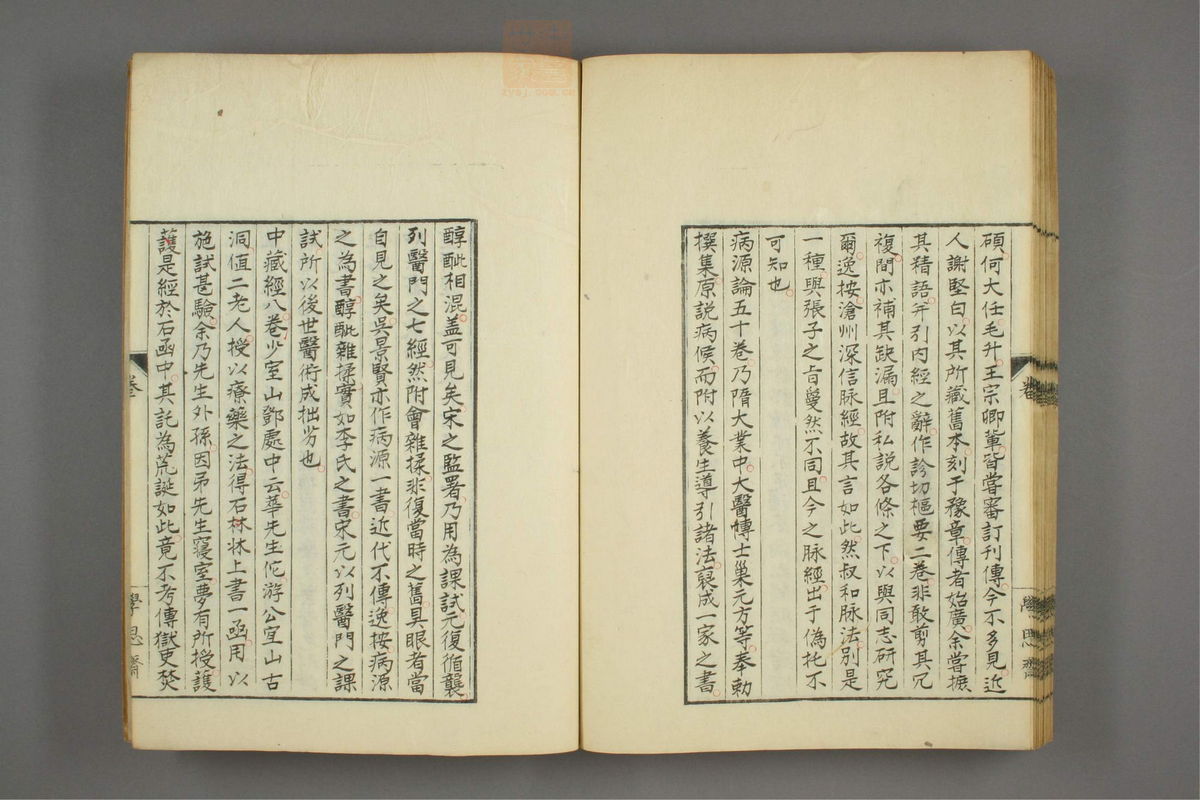 碩何大任毛升王宗卿軰皆甞審訂刊傳今不多見近
人謝堅白以其所藏舊本刻于豫章傳者始廣余甞摭
其精語并引内經之辭作診切樞要二卷非敢剪其冗
複間亦補其缺漏且附私説各條之下以與同志研究
爾逸按滄州深信脉經故其言如此然叔和脉法別是
一種與張子之旨敻然不同且今之脉經出于偽托不
可知也
病源論五十卷乃隋大業中大醫博士巢元方等奉勅
撰集原説病候而附以養生導引諸法裒成一家之書
醇駜相混盖可見矣宋之監署乃用為課試元復循襲
列醫門之七經然附會雜揉非復當時之舊具眼者當
自見之矣吳景賢亦作病源一書近代不傳逸按病源
之為書醇駜雜揉實如李氏之書宋元以列醫門之課
試所以後世醫術成拙劣也
中藏經八卷少室山鄧處中云華先生佗游公宜山古
洞值二老人授以療藥之法得石牀牀上書一函用以
施試甚驗余乃先生外孫因弔先生寝室夢有所授護
䕶是經於石函中其託為荒誕如此竟不考傳獄吏焚
卷
學思齋
卷